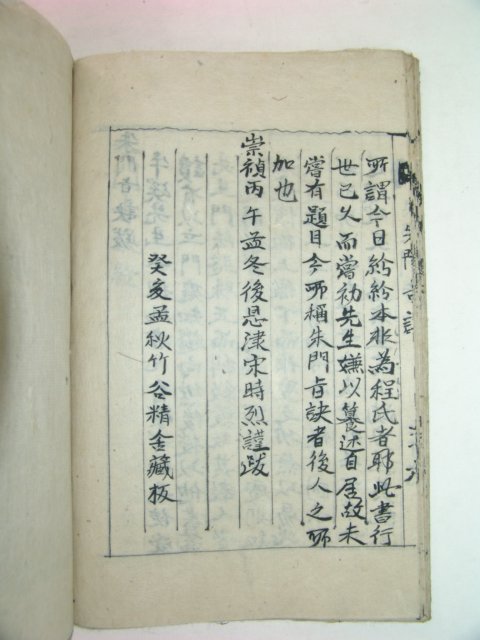 所謂今日紛紛本非為程氏者耶此書行
世已久而當初先生嫌以篹述自居故未
嘗有題目今所稱朱門旨訣者後人之所
加也
崇禎丙午孟冬後恩津宋時烈謹跋
癸亥孟秋竹谷精舍藏板